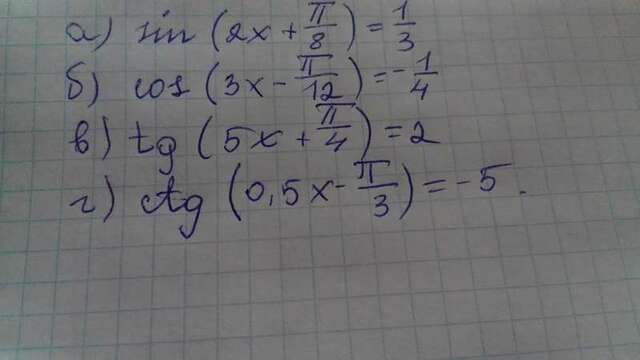 а) sin (2x + π/8) = 1/3
б) cos (3x - π/12) = -1/4
в) tg (5x + π/4) = 2
г) ctg (0,5x - π/3) = -5.